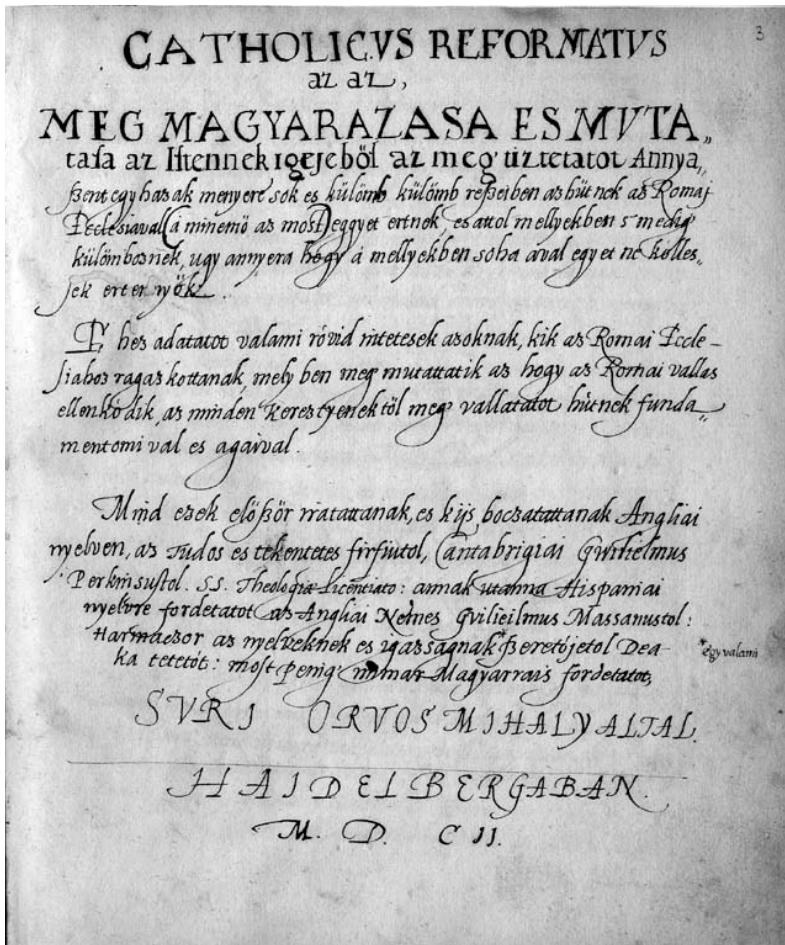 3
CATHOLICVS REFORMATVS
az az,
MEG MAGYARAZASA ES MVTA„
tasa az Istennek igejeből az meg tiztetatot Annya„
szent egyhazak menyere sok es külömb külömb reszeiben az hütnek az Romai
Ecclesiaval (á minemö az most) eggyet ertnek, es attol mellyekben s medig
külömböznek, ugy annyera hogy á mellyekben soha aval egyet ne kölles„
jek erteniyök.
E, hez adatatot valami rövid intetesek azoknak, kik az Romai Eccle-
siahoz ragaszkottanak, mely ben meg mutattatik az hogy az Romai vallas
ellenködik, az minden keresztyenektöl meg vallatatot hütnek funda„
mentomi val es agaival.
Mind ezek elöször irattattanak, es kijs boczatattanak Angliai
nyelven, az Tudos es tekentetes firfiutol, Cantabrigiai Gwilielmus
Perkinsustol. SS. Theologiæ Licentiato: annak utanna Hispaniai
nyelvre fordetatot az Angliai Nemes Gvilieilmus Massanustol:
Harmaczor az nyelveknek es igazsagnak * szeretöjetol Dea-
ka tetetöt: most penig immar Magyarrais fordetatot,
* egy valami
SVRI ORVOS MIHALY ALTAL.
HAIDELBERGABAN.
M. D. C II.